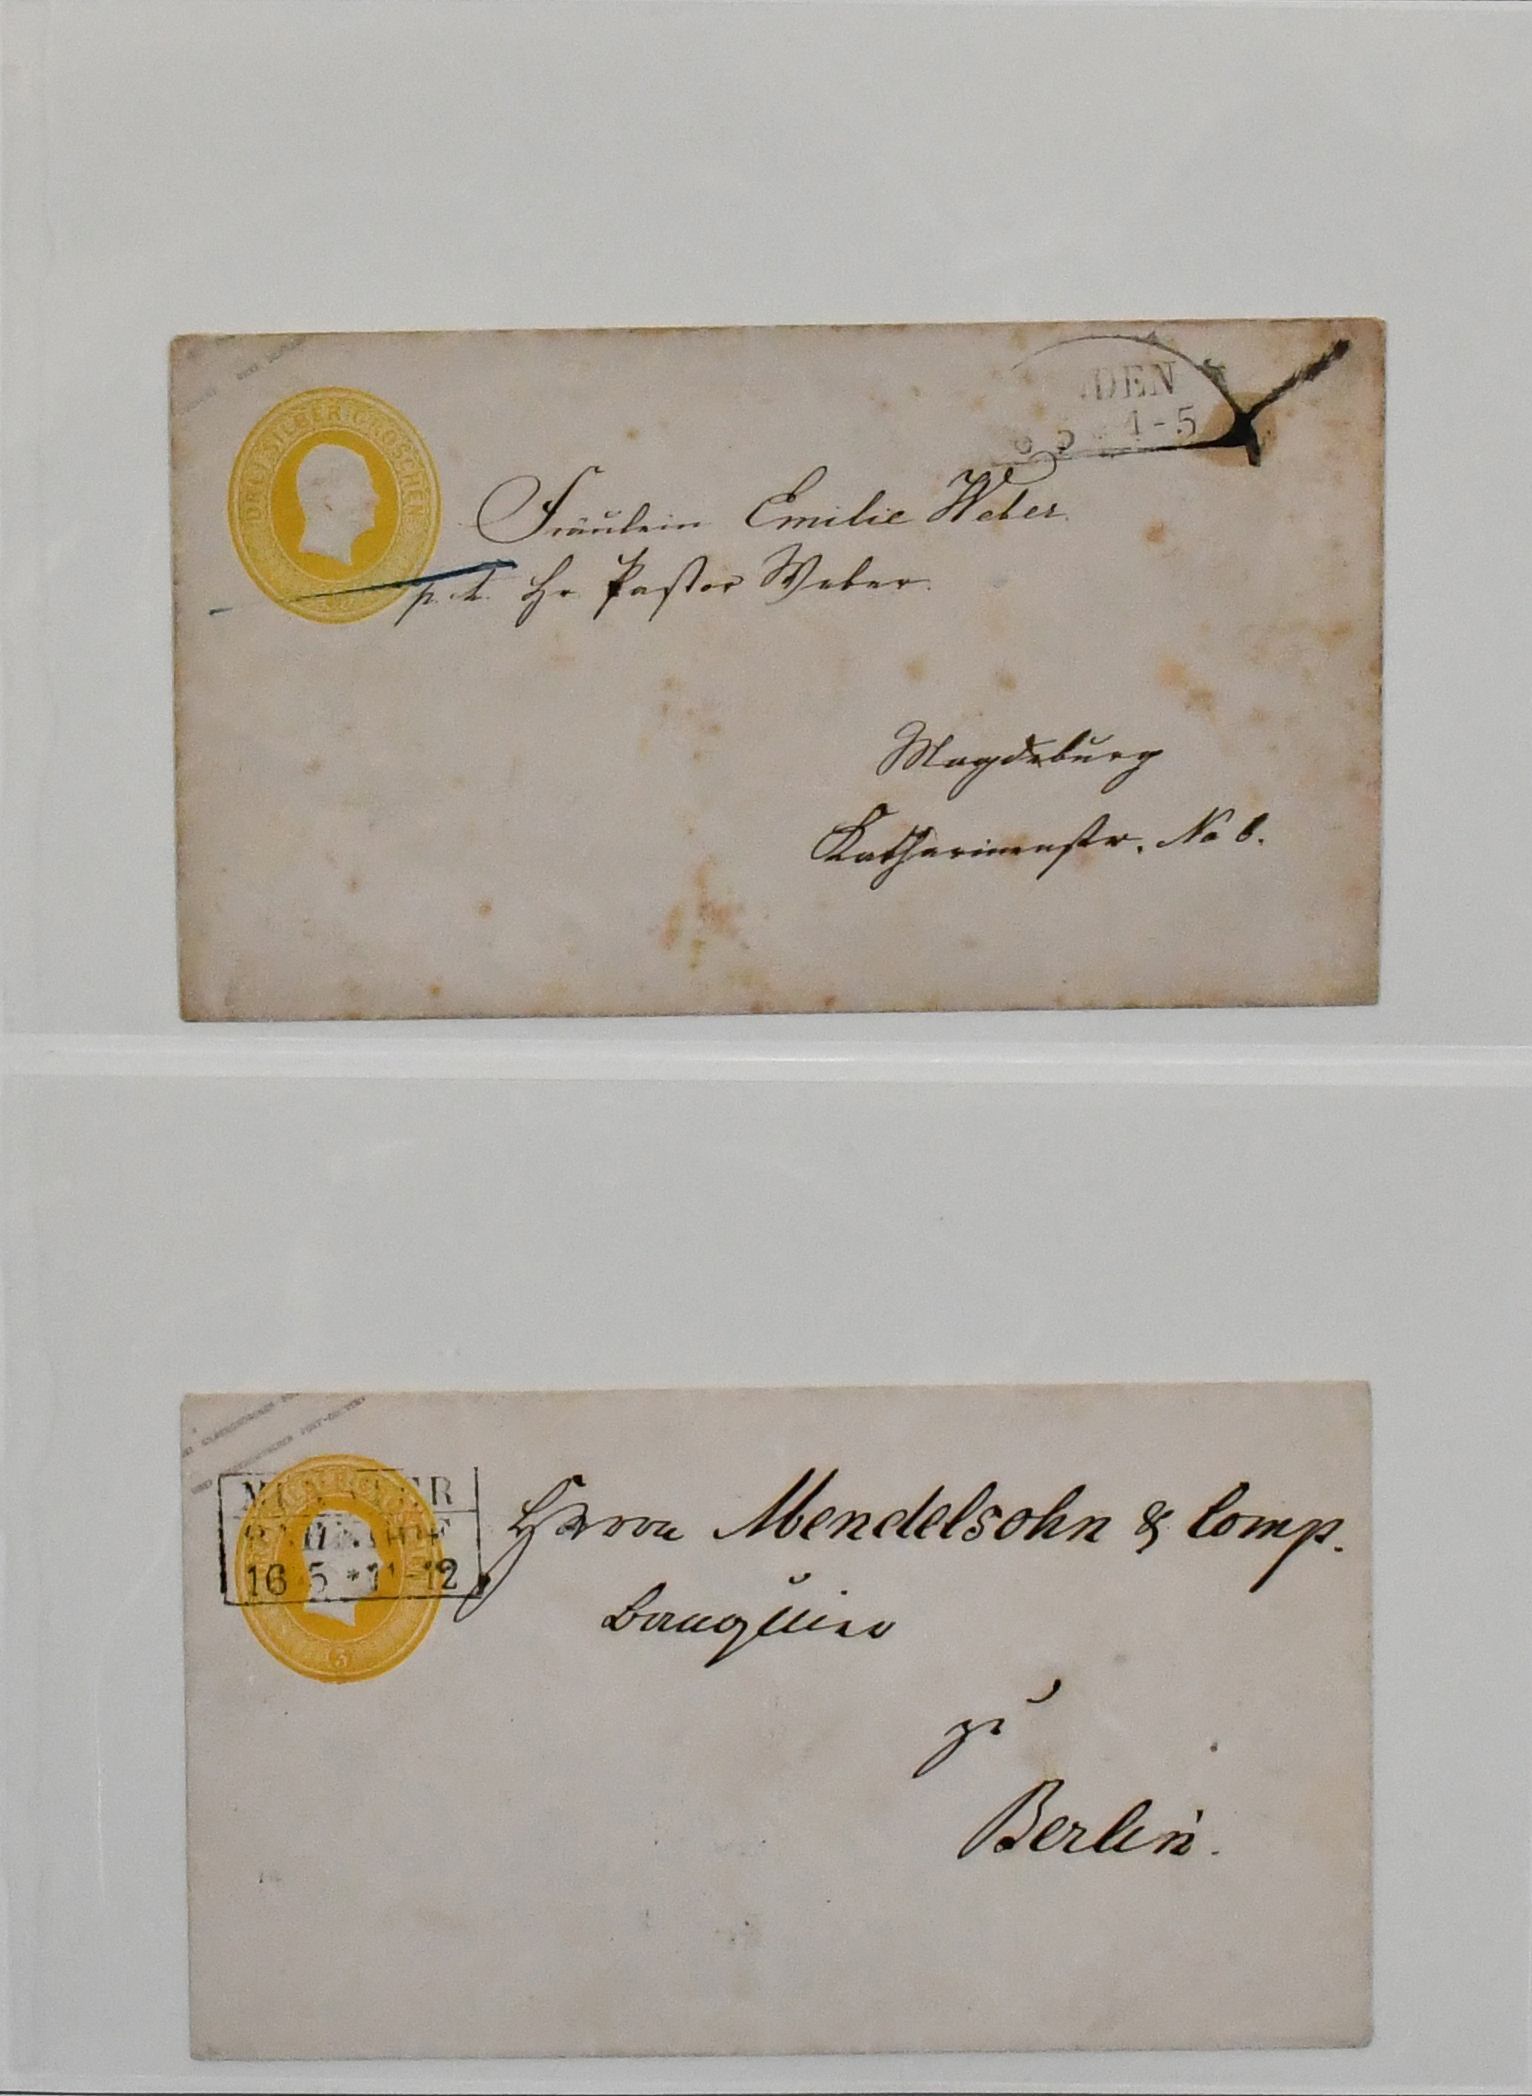 DREI SILBERGROSCHEN
DEN
5 4-5
Fräulein Emilie Weber
p. A. Hr Pastor Weber.
Magdeburg
Katharinenstr. No 6.
MÜNSTER
BAHNHOF
16 5 * 11-12
3
Herrn Mendelsohn & Comp.
Banquier
zu
Berlin.